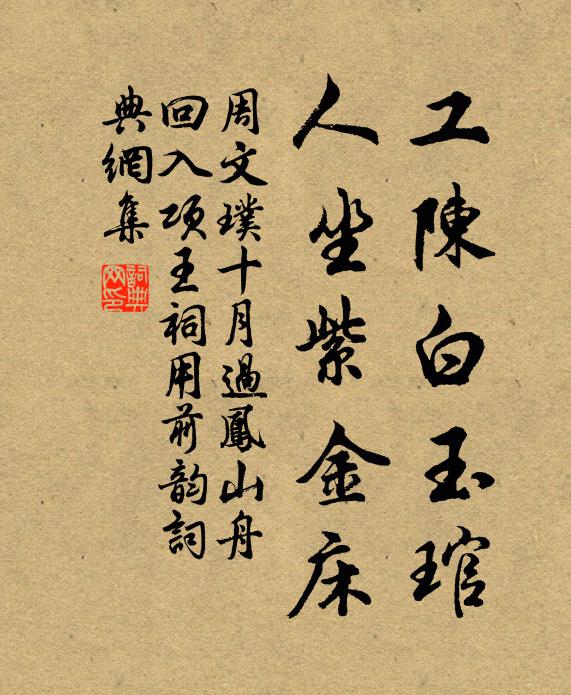 工陳白玉琯
人坐紫金床
周文璞十月過鳳山舟
回入項王祠用前韵詞
典網集
詞典
网印